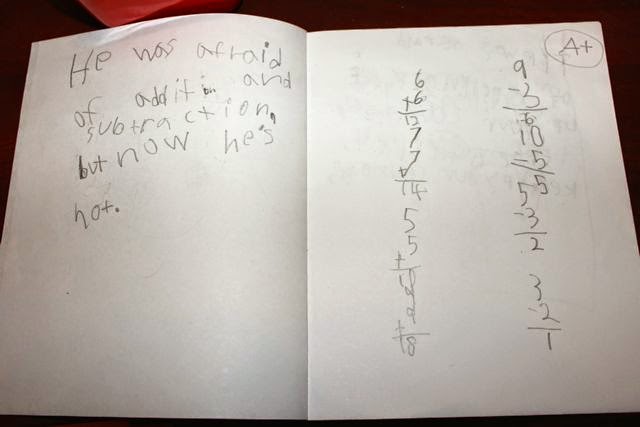 He was afraid
of addition and
subtraction,
but now he's
not.
A+
6
+6
12
7
+7
14
5
+5
9
-3
6
10
-5
5
5
-3
2
3
-2
1